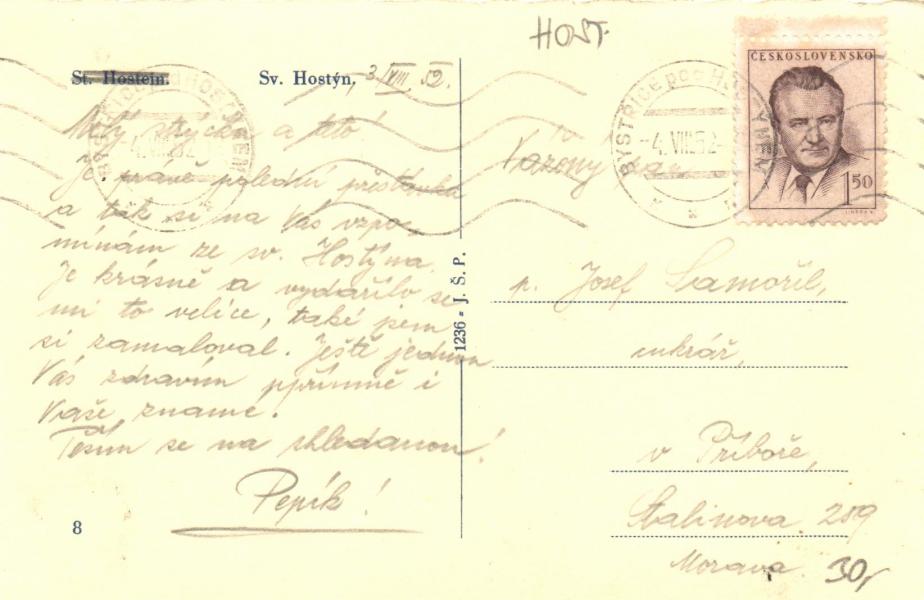 HOST.
St. Hostein. Sv. Hostýn. 3/VIII. 52.
Milý strýčku a teto!
Je právě polední přestávka
a tak si na Vás vzpo-
mínám ze sv. Hostýna.
Je krásně a vydařilo se
mi to velice, také jsem
si zamaloval. Ještě jednou
Vás zdravím upřímně i
Vaše známé.
Těším se na shledanou!
Pepík!
8
1236 - J. Š. P.
BYSTŘICE pod HOSTÝNEM
-4.VIII.52-
ČESKOSLOVENSKO
1 50
Vážený pan
p. Josef
cukrář,
v Příboře,
Stalinova 289
Morava.
30,-